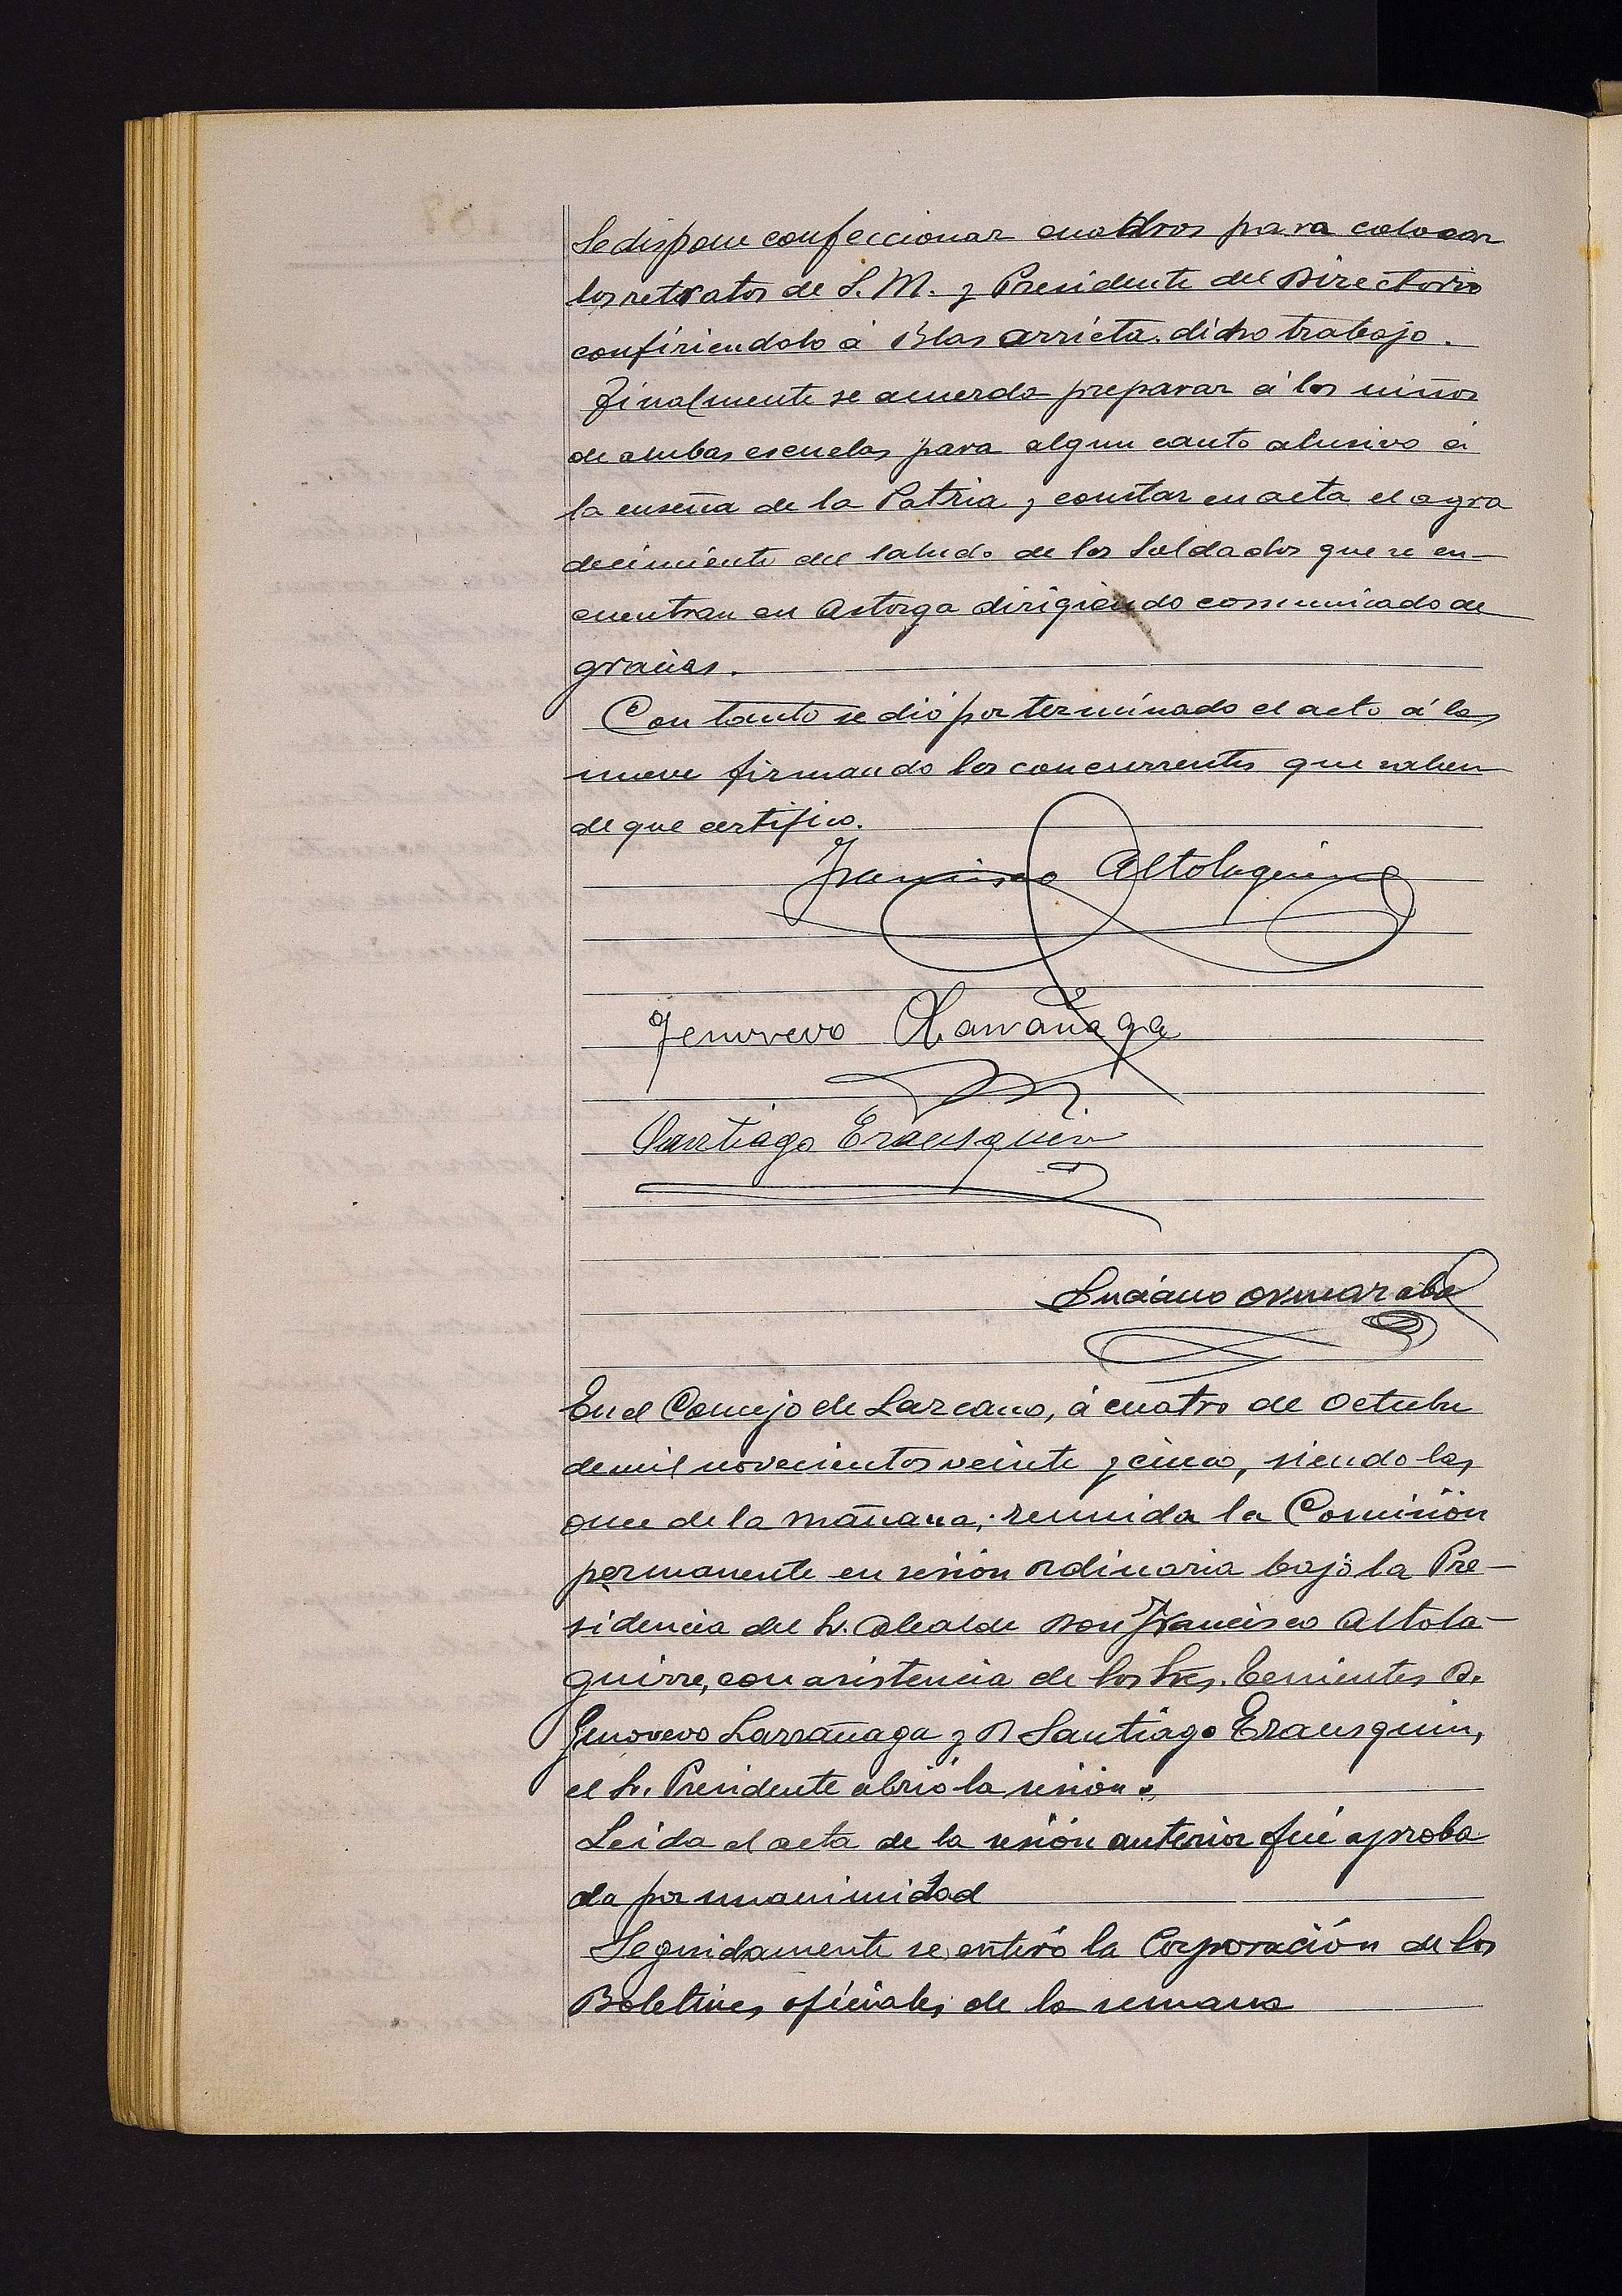 Se dispone confeccionar cuadros para colocar
los retratos de S. M. y Presidente del Directorio
confiriendolo á Blas Arrieta dicho trabajo.
Finalmente se acuerda preparar á los niños
de ambas escuelas para algun canto alusivo á
la enseña de la Patria y constar en acta el agra
decimiento del saludo de los soldados que se en-
cuentran en Astorga dirigiendo comunicado de
gracias.
Con tanto se dió por terminado el acto á las
nueve firmando los concurrentes que saben
de que certifico.
Francisco Altolaguirre
Jenovevo Larrañaga
Santiago Erausquin
Luciano
En el Concejo de Lazcano, á cuatro de Octubre
de mil novecientos veinte y cinco, siendo las
once de la mañana; reunida la Comisión
permanente en sesión ordinaria bajo la Pre-
sidencia del Sr. Alcalde Don Francisco Altola-
guirre, con asistencia de los Sres. Tenientes D.
Genovevo Larrañaga y D Santiago Erausquin,
el Sr. Presidente abrió la sesión.
Leida el acta de la sesión anterior fué aproba
da por unanimidad
Seguidamente se enteró la Corporación de los
Boletines oficiales de la semana